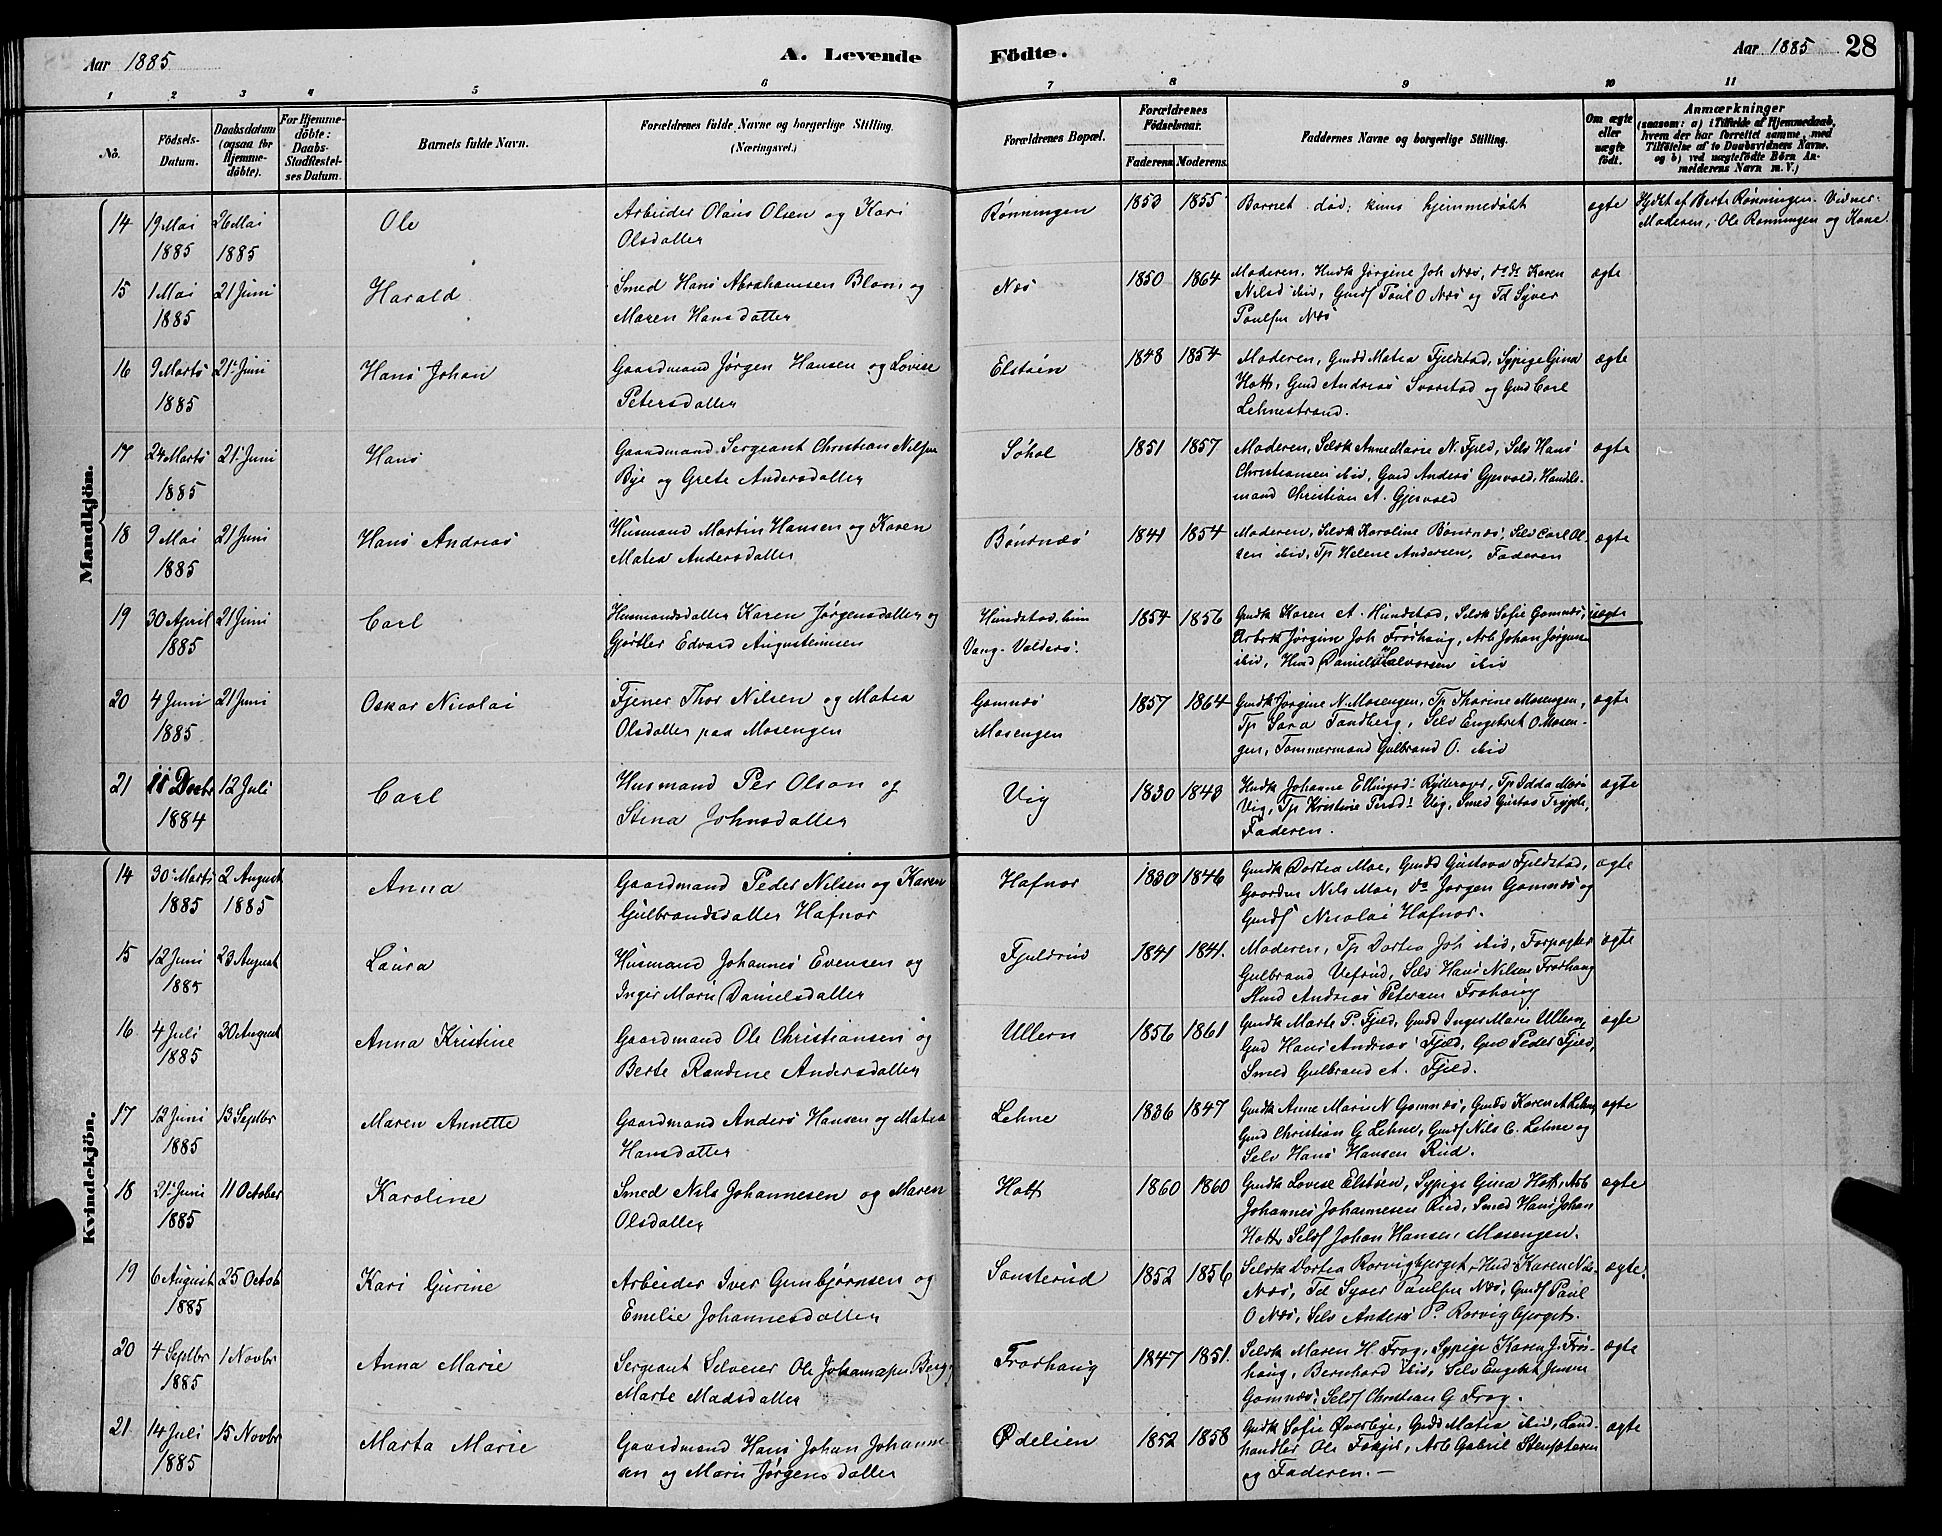 Aar 1885
A. Levende
Födte.
Aar 1885
28
1 2 3 4 5 6 7 8 9 10 11
No.
Födsels-
Datum.
Daabsdatum
(ogsaa for
Hjemme-
döbte).
For Hjemme-
döbte:
Daabs-
Stadfæstel-
ses Datum.
Barnets fulde Navn.
Forældrenes fulde Navne og borgerlige Stilling.
(Næringsvei.)
Forældrenes Bopæl.
Forældrenes
Födselsaar.
Faderens. Moderens.
Faddernes Navne og borgerlige Stilling.
Om ægte
eller
uægte
födt.
Anmærkninger
(saasom: a) i Tilfælde af Hjemmedaab,
hvem der har forrettet samme, med
Tilföielse af to Daabsvidners Navne,
og b) ved uægtefödte Börn An-
melderens Navn m. V.)
Mandkjön.
14 19 Mai 26 Mai Ole Arbeider Olaus Olsen og Kari Rønningen 1853 1855 Barnet død; kuns hjemmedøbt ægte Hjdbt af Berte Rønningen. Vidner
1885 1885 Olsdatter Moderen, Ole Rønningen og Kone.
15 1 Mai 21 Juni Harald Smed Hans Abrahamsen Blom og Næs 1850 1864 Moderen, Hudk Jørgine Joh Næs, do do Karen ægte
1885 Maren Hansdatter Nilsd ibid, Gmdsf Paul O Næs og Td Syver
Paulsen Næs
16 9 Marts 21 Juni Hans Johan Gaardmand Jørgen Hansen og Lovise Elstøen 1848 1854 Moderen, Gmdd Matea Fjeldstad, Sypige Gina ægte
1885 Petersdatter Hott, Gmd Andreas Svarstad og Gmd Carl
Lehnestrand.
17 24 Marts 21 Juni Hans Gaardmand Sergeant Christian Nilsen Søhol 1851 1857 Moderen, Selvk Anne Marie N. Fjeld, Selv Hans ægte
1885 Bye og Grete Andersdatter Christiansen ibid, Gmd Anders Gjesvold, Handels-
mand Christian A. Gjesvold
18 9 Mai 21 Juni Hans Andreas Husmand Martin Hansen og Karen Bønsnæs 1841 1854 Moderen, Selvk Karoline Bønsnæs, Selv Carl Ol- ægte
1885 Matea Andersdatter sen ibid, Tp Helene Andersen, Faderen
19 30 April 21 Juni Carl Husmandsdatter Karen Jørgensdatter og Hundstad, hun 1854 1856 Gmdk Karen A. Hundstad, Selvk Sofie Gomnæs, uægte
1885 Gjørtler Edvard Augustinusen Vang-Valders. Arbsk Jørgine Joh Frøshaug, Arb Johan Jørgensen
ibid, Hmd Daniel Halvorsen ibid
20 4 Juni 21 Juni Oskar Nicolai Tjener Thor Nilsen og Matea Gomnæs 1857 1864 Gmdk Jørgine N. Mosengen, Tp Thorine Mosengen, ægte
1885 Olsdatter paa Mosengen Mosengen Tp Sara Tandberg, Selv Engebret O Mosen-
gen, Tømmermand Gulbrand O. ibid
21 11 Decbr 12 Juli Carl Husmand Per Olson og Vig 1830 1843 Hudk Johanne Ellingsd: Rytterager, Tp Idda Marie ægte
1884 Stina Johnsdatter Vig, Tp Kristine Persd: Vig, Smed Gustav
Faderen.
Kvindekjön.
14 30 Marts 2 August Anna Gaardmand Peder Nilsen og Karen Hafnor 1830 1846 Gmdk Dortea Moe, Gmdd Gustava Fjeldstad, ægte
1885 1885 Gulbrandsdatter Hafnor Gaardm Nils Moe, do Jørgen Gomnæs og
Gmdsf Nicolai Hafnor.
15 12 Juni 23 August Laura Husmand Johannes Evensen og Fjeldrud 1841 1841. Moderen, Tp Dortea Joh ibid, Forpagter ægte
1885 Inger Marie Danielsdatter Gulbrand Vefsrud, Selv Hans Nilsen Frøshaug
Hmd Andreas Petersen Frøshaug
16 4 Juli 30 August Anna Kristine Gaardmand Ole Christiansen og Ullern 1856 1861 Gmdk Marte P. Fjeld, Gmdd Inger Marie Ullern, ægte
1885 Berte Randine Andersdatter Gmd Hans Andreas Fjeld, Gmd Peder Fjeld,
Smed Gulbrand A. Fjeld.
17 12 Juni 13 Septbr Maren Annette Gaardmand Anders Hansen og Matea Lehne 1836 1847 Gmdk Anne Marie N Gomnæs, Gmdd Karen A Lehne ægte
1885 Hansdatter Gmd Christian G Lehne, Gmdsf Nils C. Lehne og
Selv Hans Hansen Rud.
18 21 Juni 11 October Karoline Smed Nils Johannesen og Maren Hott 1860 1860 Gmdk Lovise Elstøen, Sypige Gina Hott, Arb ægte
1885 Olsdatter Johannes Johannesen Rud, Smed Hans Johan
Hott, Selvsf Johan Hansen Mosengen.
19 6 August 25 Octob Kari Gurine Arbeider Iver Gunbjørnsen og Sønsterud 1852 1856 Selvk Dortea Rørvigbjerget, Hmd Karen Nils- ægte.
1885 Emelie Johannesdatter Næs, Td Syver Paulsen Næs, Gmdsf Paul
O Næs, Selv Anders P. Rørvigbjerget.
20 4 Septbr 1 Novbr Anna Marie Sergeant Selveier Ole Johannesen Berg, Frøshaug 1847 1851. Selvk Maren H Frog, Sypige Karen J. Frøs- ægte
1885 Marte Madsdatter haug, Bernhard ibid, Selv Engebret Jensen
Gomnæs, Selvsf Christian G Frog.
21 14 Juli 15 Novbr Marta Marie Gaardmand Hans Johan Johannes- Ødelien 1852 1858 Gmdk Sofie Øverbye, Gmdd Matea ibid, Land- ægte
1885 sen og Maria Jørgensdatter handler Ole Fakjel, Arb Gabriel Stensæteren
og Faderen.—